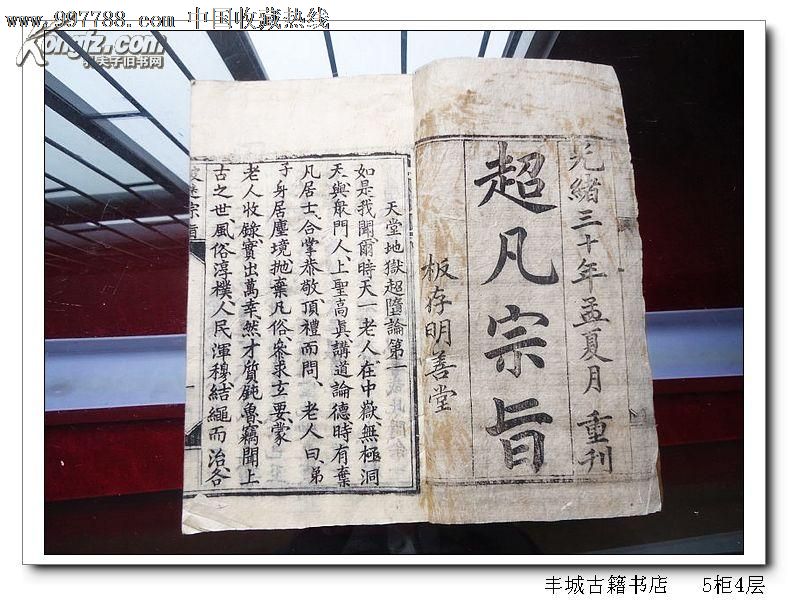 www.997788.com 中国收藏热线
Kongfz.com
孔夫子旧书网
光緒三十年孟夏月 重刊
超凡宗旨
板存明善堂
天堂地獄超墮論第一
如是我聞、爾時天一老人、在中嶽、無極洞
天、與衆門人、上聖高眞、講道論德、時有棄
凡居士、合掌恭敬、頂禮而問、老人曰、弟
子身居塵境、拋棄凡俗、叅求玄要、蒙
老人收錄、實出萬幸、然才質鈍魯、竊聞上
古之世、風俗淳樸、人民渾穆、結繩而治、各
宗旨
丰城古籍书店 5柜4层